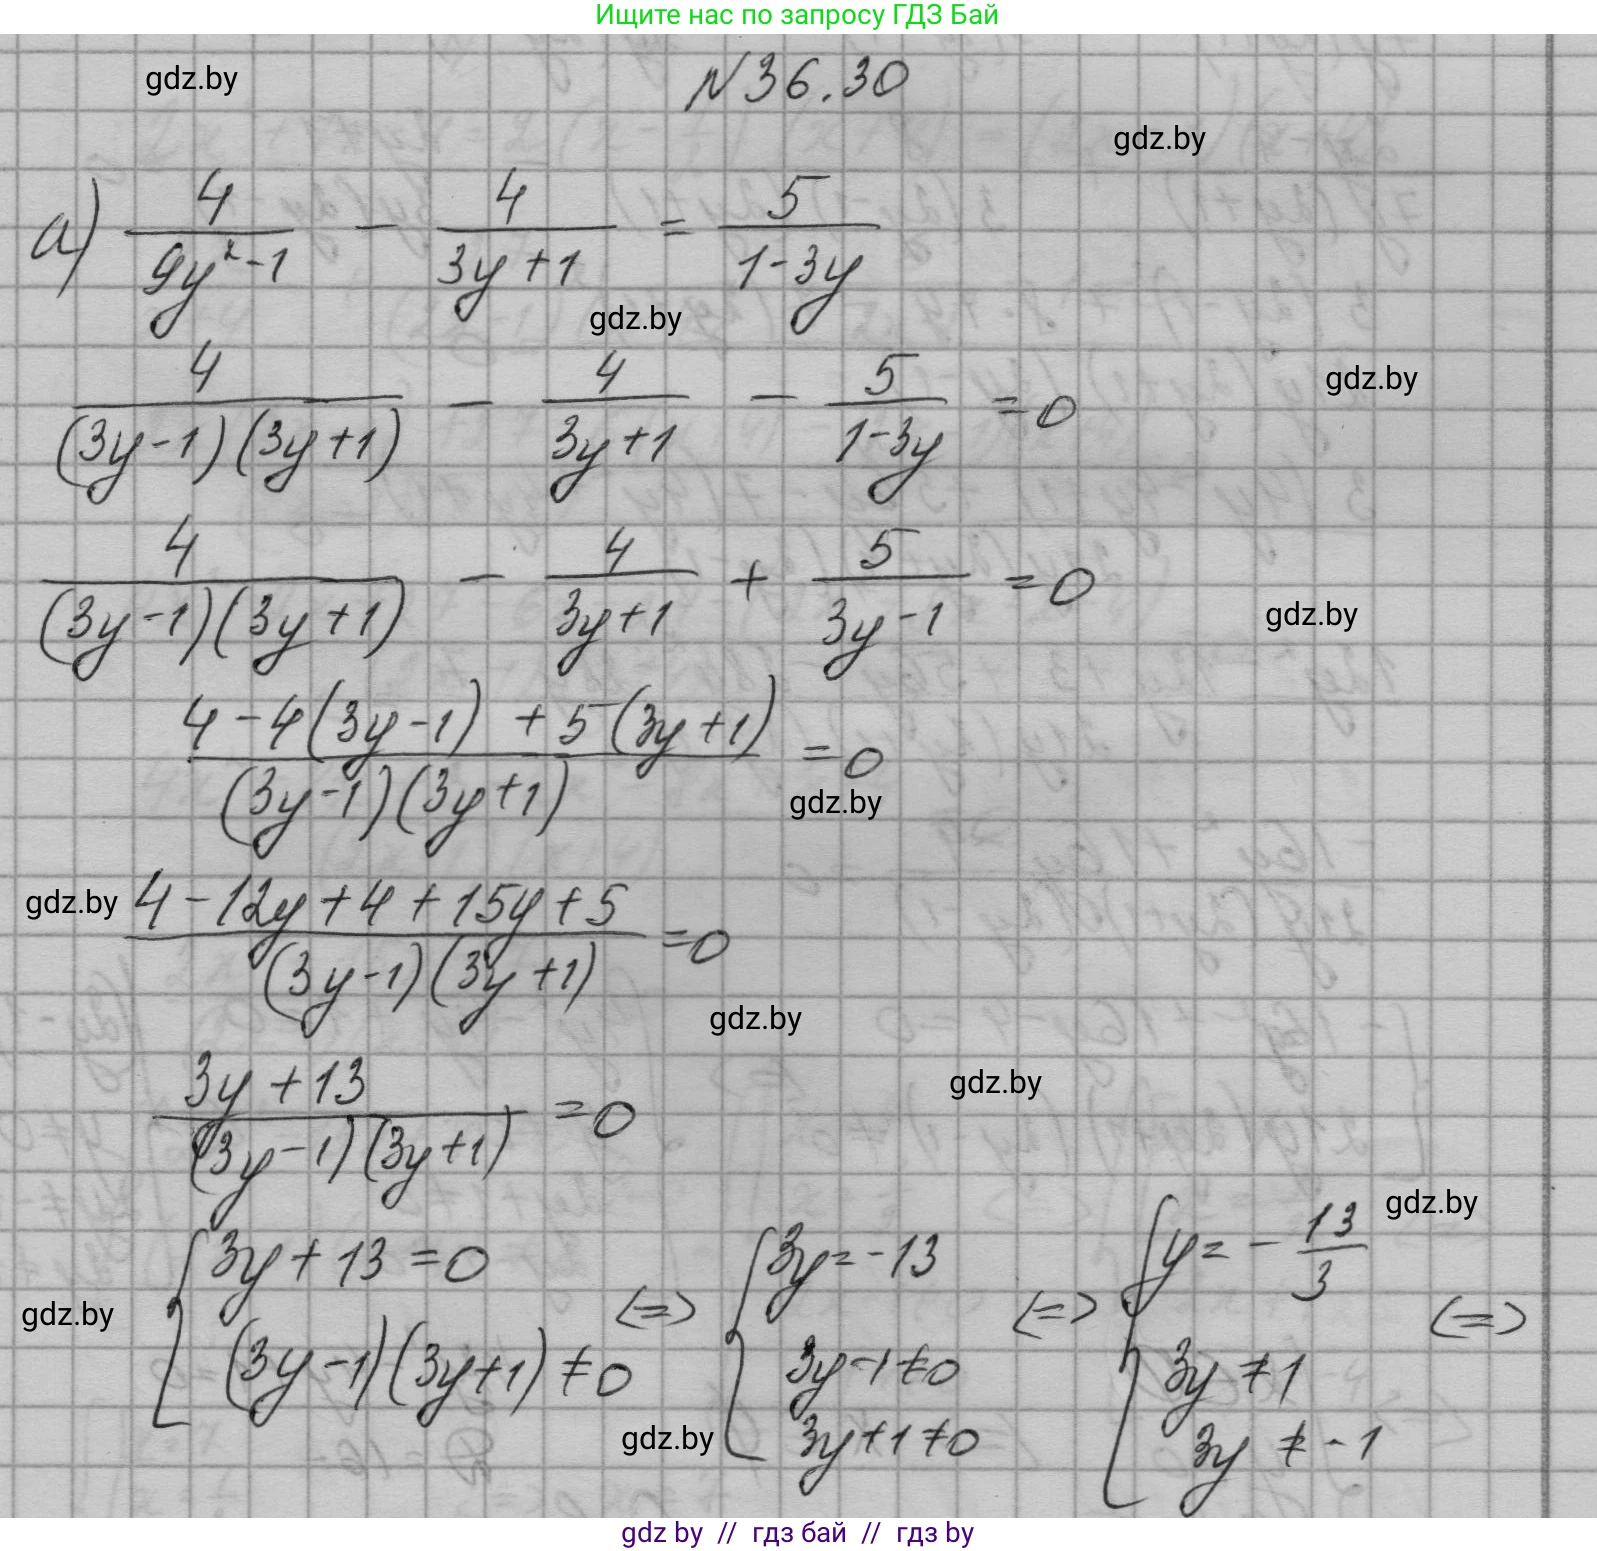 Ищите нас по запросу ГДЗ Бай
gdz.by
N 36.30
gdz.by
а) 4/(9y²-1) - 4/(3y+1) = 5/(1-3y)
gdz.by
4/((3y-1)(3y+1)) - 4/(3y+1) - 5/(1-3y) = 0
gdz.by
4/((3y-1)(3y+1)) - 4/(3y+1) + 5/(3y-1) = 0
gdz.by
(4-4(3y-1)+5(3y+1))/((3y-1)(3y+1)) = 0
gdz.by
gdz.by
(4-12y+4+15y+5)/((3y-1)(3y+1)) = 0
gdz.by
gdz.by
(3y+13)/((3y-1)(3y+1)) = 0
gdz.by
{ 3y+13=0 (3y-1)(3y+1)≠0 <=> { 3y=-13 3y-1≠0 3y+1≠0 <=> { y=-13/3 3y≠1 3y≠-1 <=>
gdz.by
gdz.by
gdz by // гдз бай // гдз by